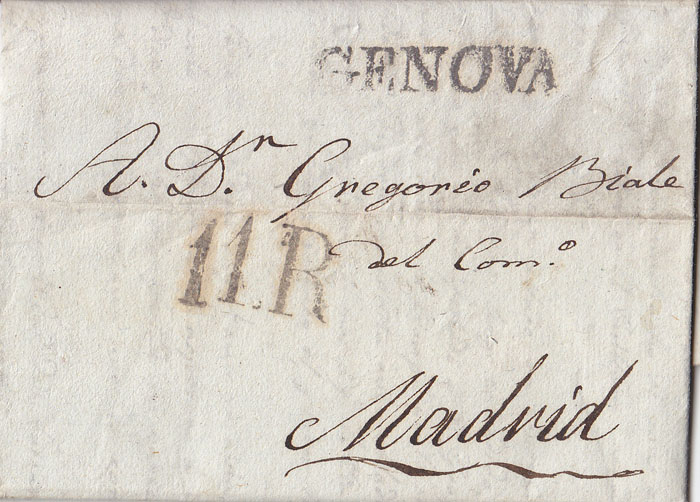 GENOVA
A. D.ⁿ Gregorio Biale
11.R
del Com.º
Madrid